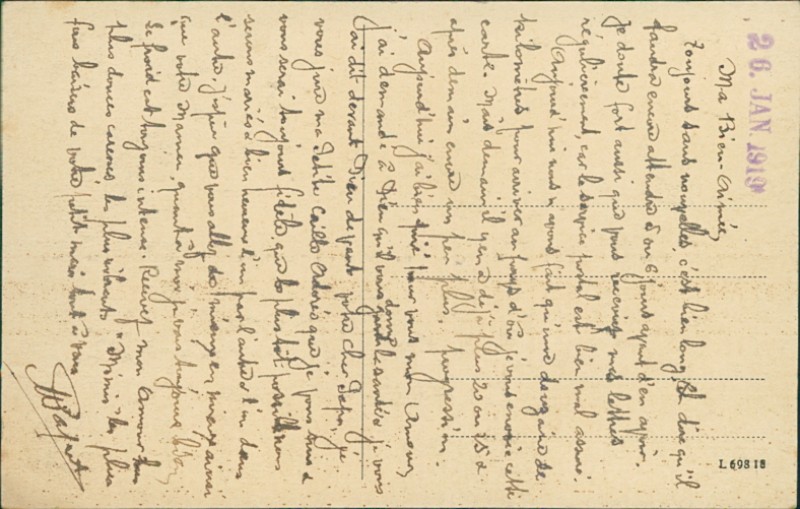 26. JAN. 1919
Ma Bien-Aimée,
Toujours sans nouvelles, c'est bien long, et dire qu'il
faudra encore attendre 5 ou 6 jours avant d'en avoir.
Je doute fort aussi que vous receviez mes lettres
régulièrement, car le service postal est bien mal assuré.
Aujourd'hui nous n'avons fait qu'une douzaine de
kilomètres pour arriver au pays d'où je vous envoie cette
carte. Mais demain il y en a déjà plus 20 ou 25 &
après demain encore un peu plus, progression.
Aujourd'hui j'ai bien prié pour vous mon Amour,
j'ai demandé à Dieu qu'il vous donne la santé & je vous
j'ai dit devant Dieu devant votre cher Papa, je
vous jure ma Petite Caille Adorée que je vous suis &
vous serai toujours fidèle, que le plus tôt possible nous
serons mariés & bien heureux l'un par l'autre & l'un dans
l'autre. J'espère que vous allez de mieux en mieux ainsi
que votre Maman, quant à moi je vais toujours bien,
Le froid est toujours intense. Recevez mon Amour les
plus douces caresses les plus & Mimis les plus
fous baisers de votre petit mari tout à vous
L 69818